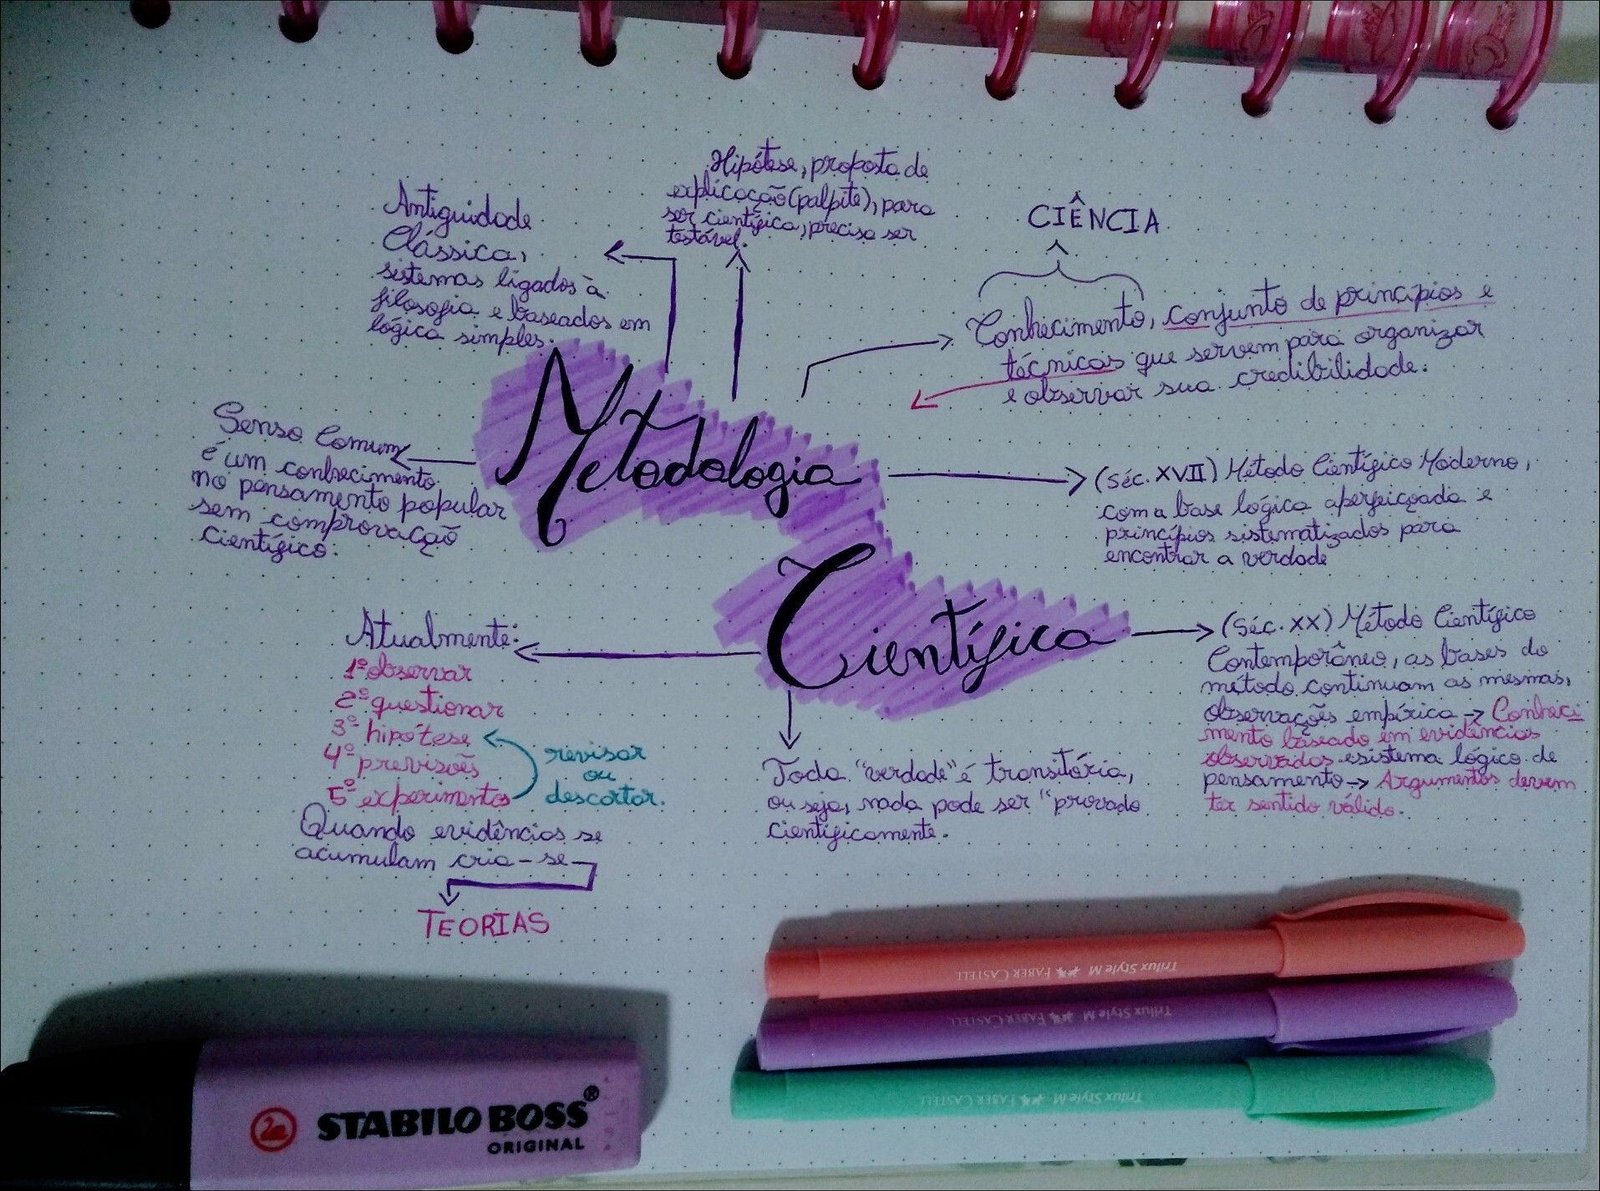 Hipótese, proposta de
explicação (palpite), para
ser científica, precisa ser
testável.
Antiguidade
Clássica,
sistemas ligados à
filosofia e baseados em
lógica simples.
CIÊNCIA
Conhecimento, conjunto de princípios e
técnicas que servem para organizar
e observar sua credibilidade.
Senso Comum
é um conhecimento
no pensamento popular
sem comprovação
científico.
Metodologia
Científica
(séc. XVII) Método Científico Moderno,
com a base lógica aperfeiçoada e
princípios sistematizados para
encontrar a verdade
(séc. XX) Método Científico
Contemporâneo, as bases do
método continuam as mesmas,
observações empírica → Conheci
mento baseado em evidências
observadas e sistema lógico de
pensamento → Argumentos devem
ter sentido válido.
Atualmente:
1º observar
2º questionar
3º hipótese
4º previsões
5º experimentos
revisar
ou
descartar.
Quando evidências se
acumulam cria-se
TEORIAS
Toda "verdade" é transitória,
ou seja, nada pode ser "provado
cientificamente.
Trilux Style M FABER CASTELL
Trilux Style M FABER CASTELL
Trilux Style M FABER CASTELL
STABILO BOSS®
ORIGINAL